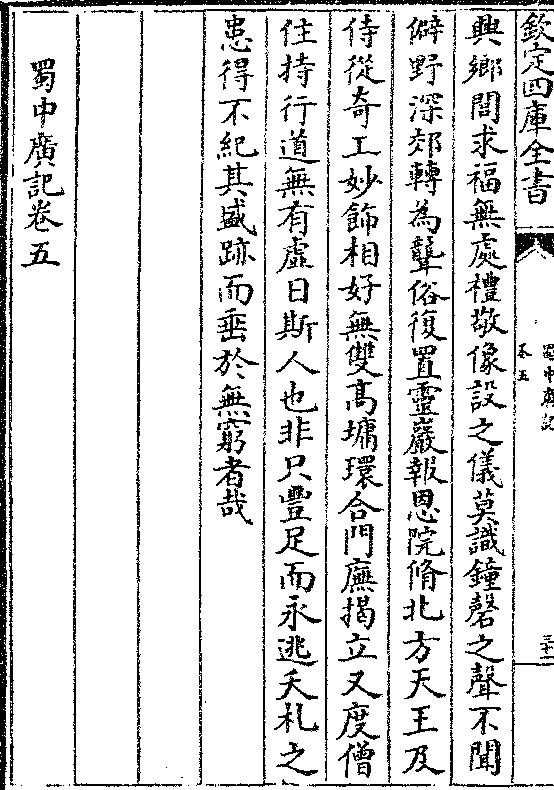 欽定四庫全書
蜀中廣記
卷五
三十一
興鄉閭求福無處禮敬像設之儀莫識鐘磬之聲不聞
僻野深郊轉為聾俗復置靈巖報恩院脩北方天王及
侍從奇工妙飾相好無雙髙墉環合門廡揭立又度僧
住持行道無有虛日斯人也非只豐足而永逃夭札之
患得不紀其盛跡而垂於無窮者哉
蜀中廣記卷五